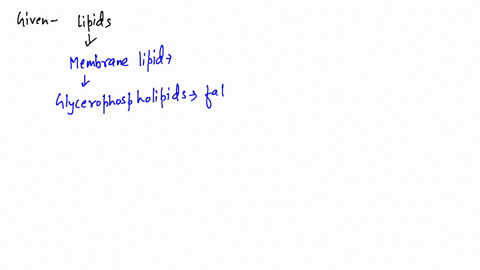 Given- Lipids
↓
Membrane lipid→
↓
Glycerophospholipids→ fal